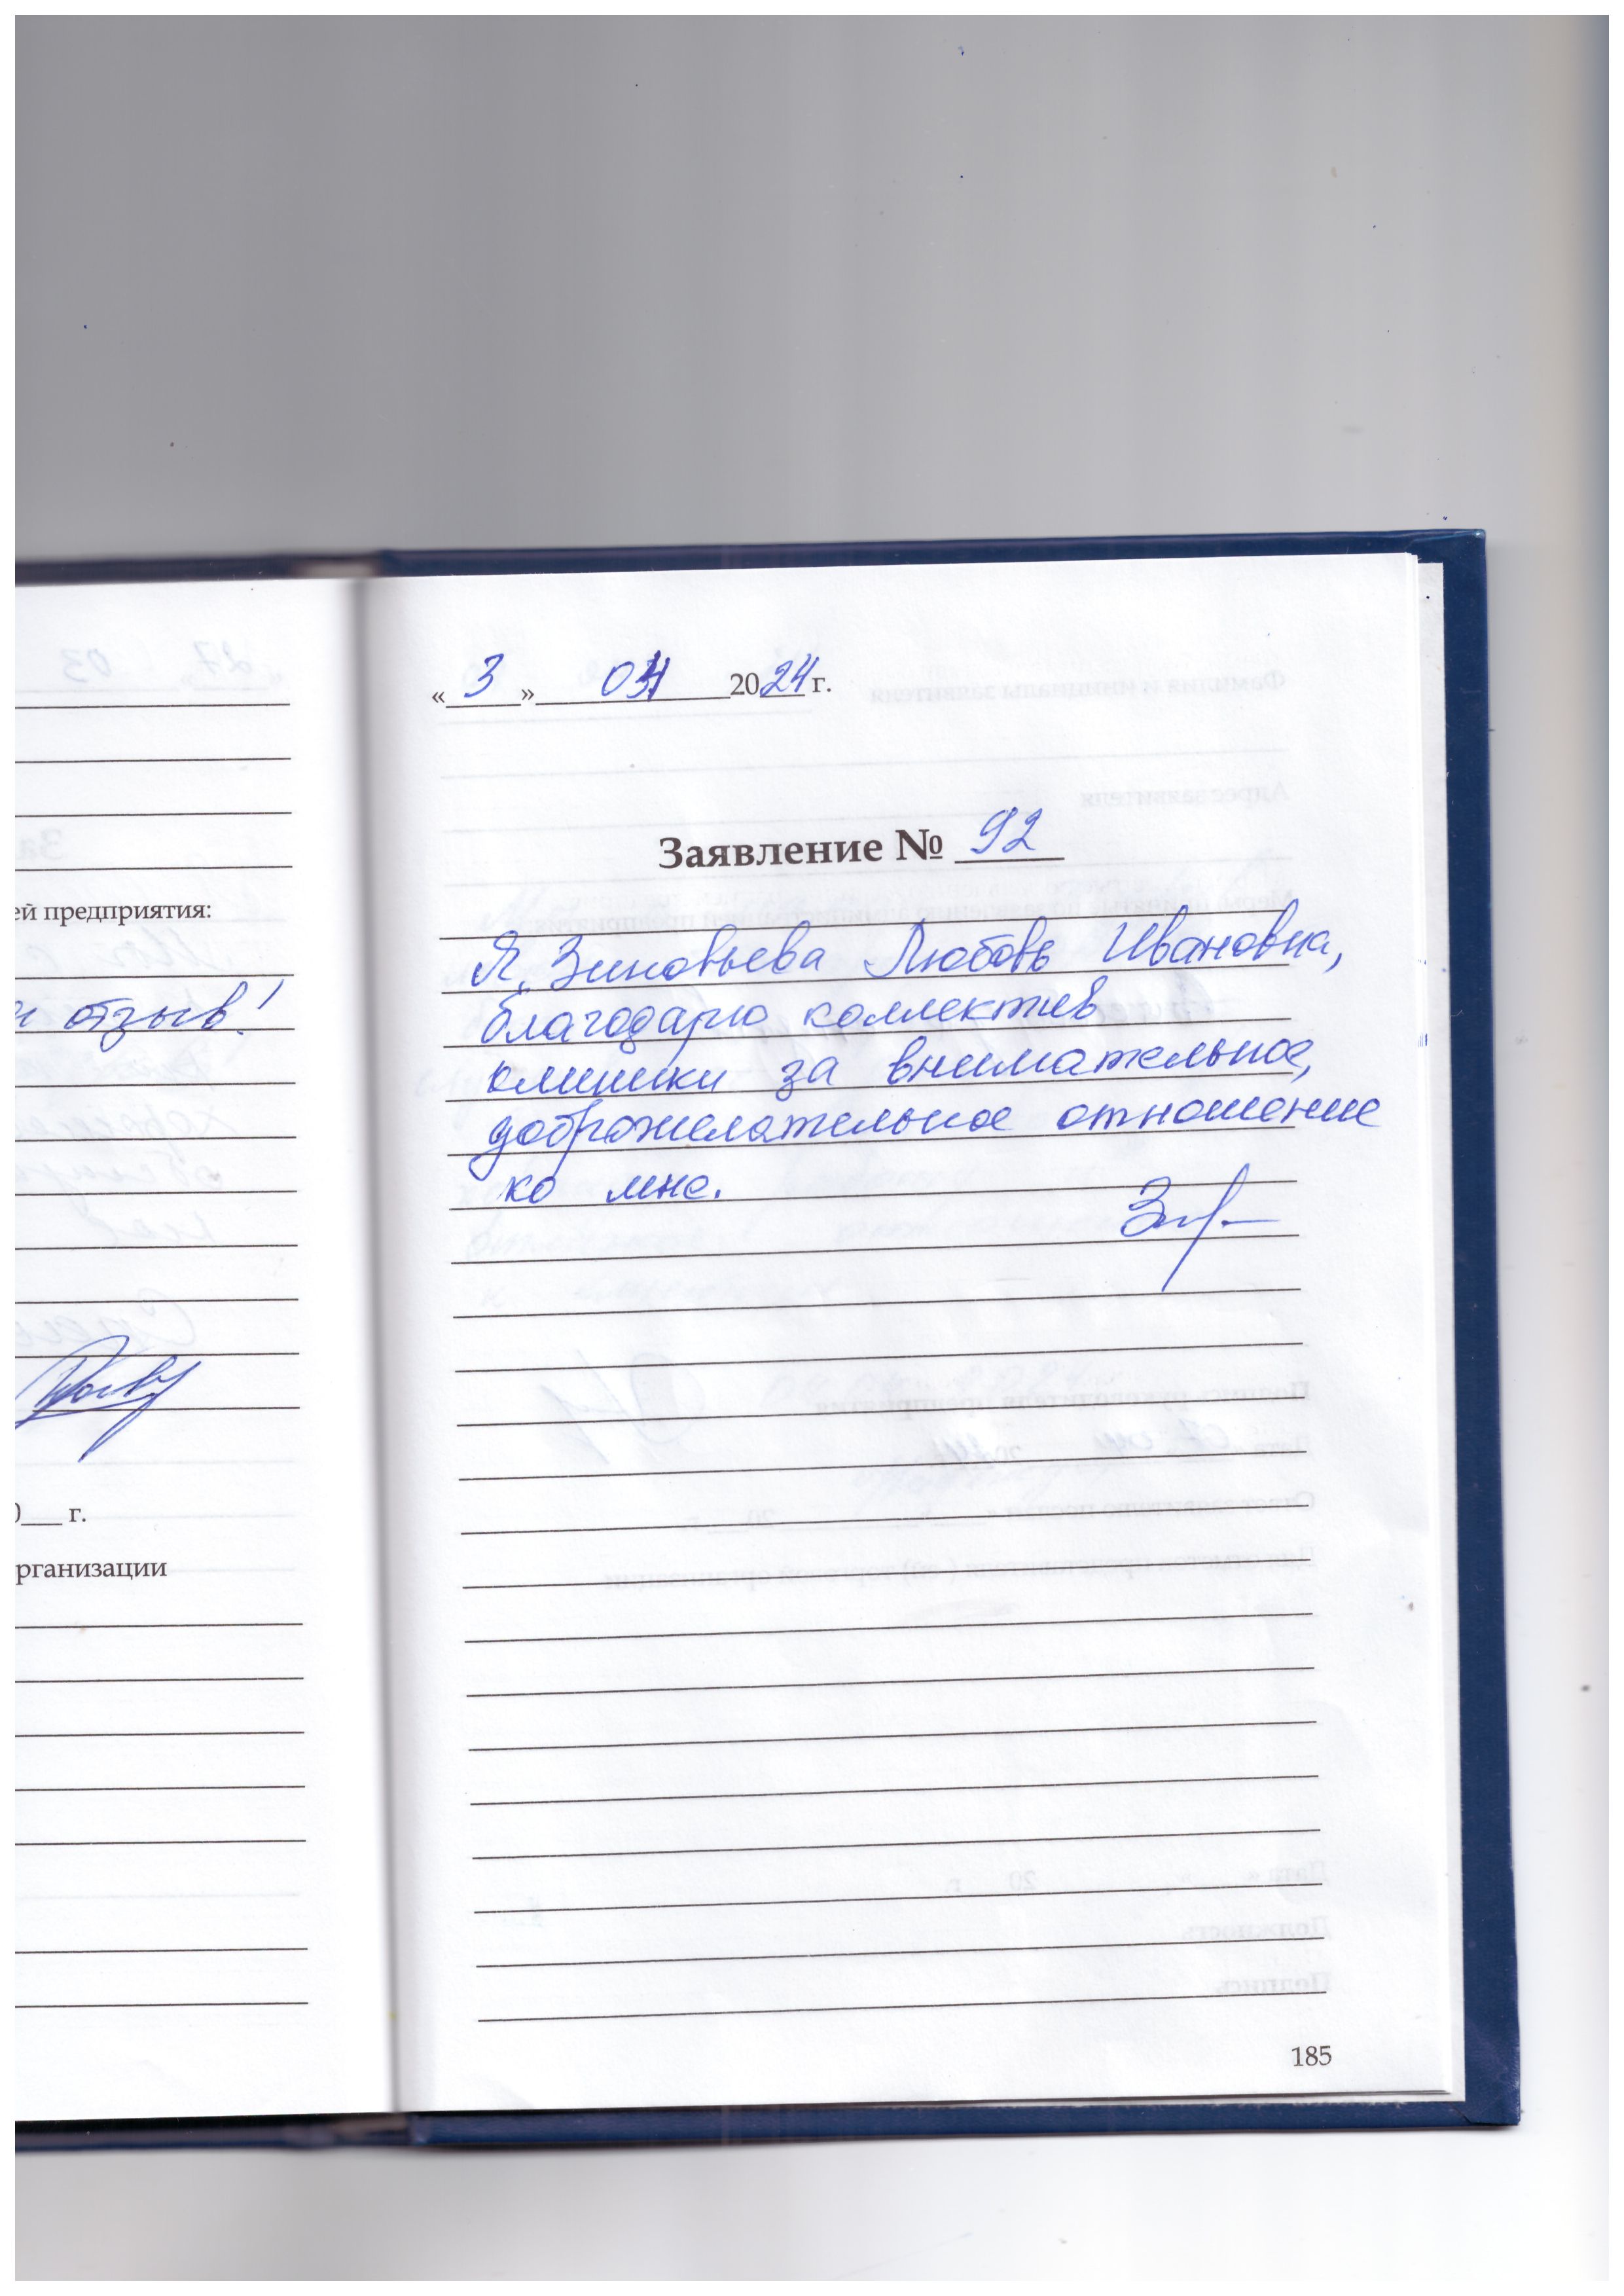 ей предприятия:
отзыв!
г.
рганизации
« 3 » 04 2024 г.
Заявление № 92
Я, Зиновьева Любовь Ивановна,
благодарю коллектив
клиники за внимательное,
доброжелательное отношение
ко мне.
185